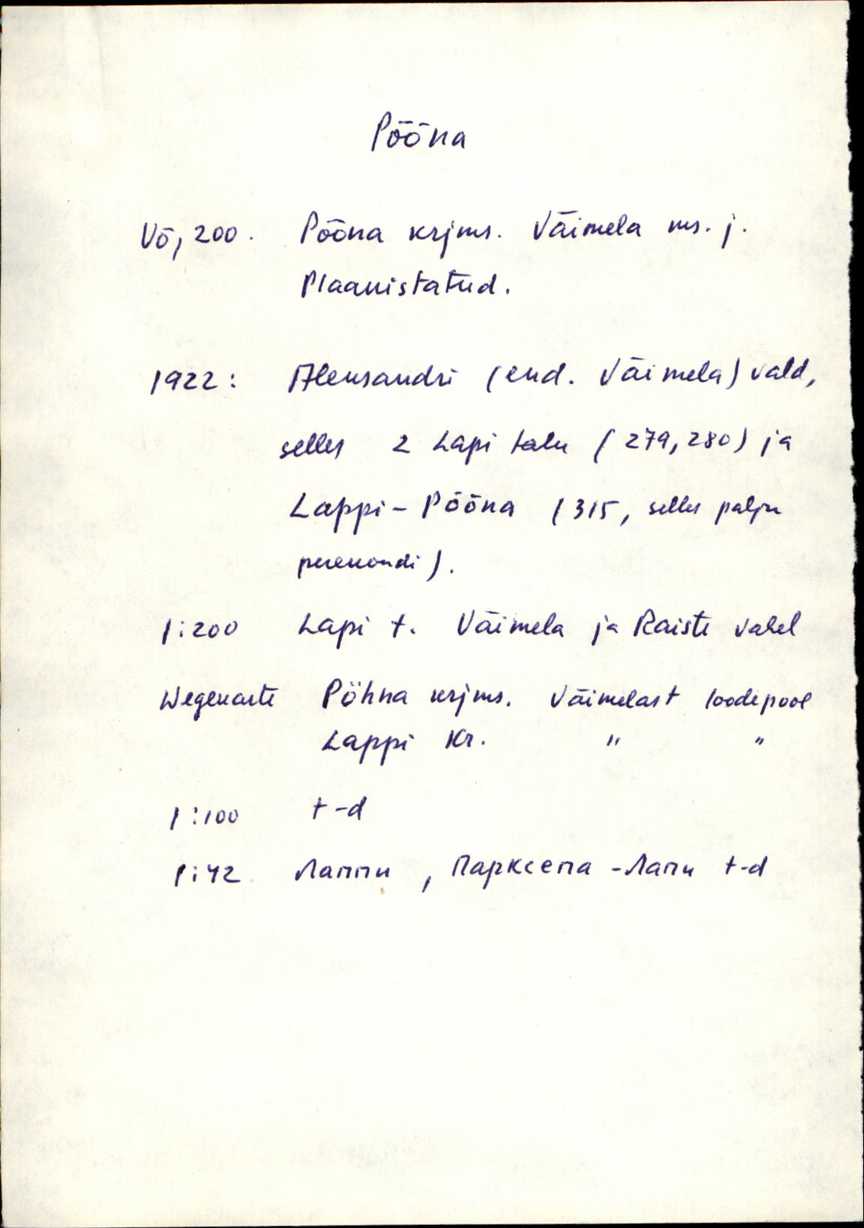 Põõna
Võ, 200. Põõna krjms. Väimela ms. j.
Plaanistatud.
1922: Aleksandri (end. Väimela) vald,
selles 2 Lapi talu (279, 280) ja
Lappi-Põõna (315, selles palju
perekondi).
1:200 Lapi t. Väimela ja Raiste vahel
Wegekarte Pöhna krjms. Väimelast loodepool
Lappi Kr. " "
1:100 t-d
1:42 Лаппи, Парксепа-Лапи t-d